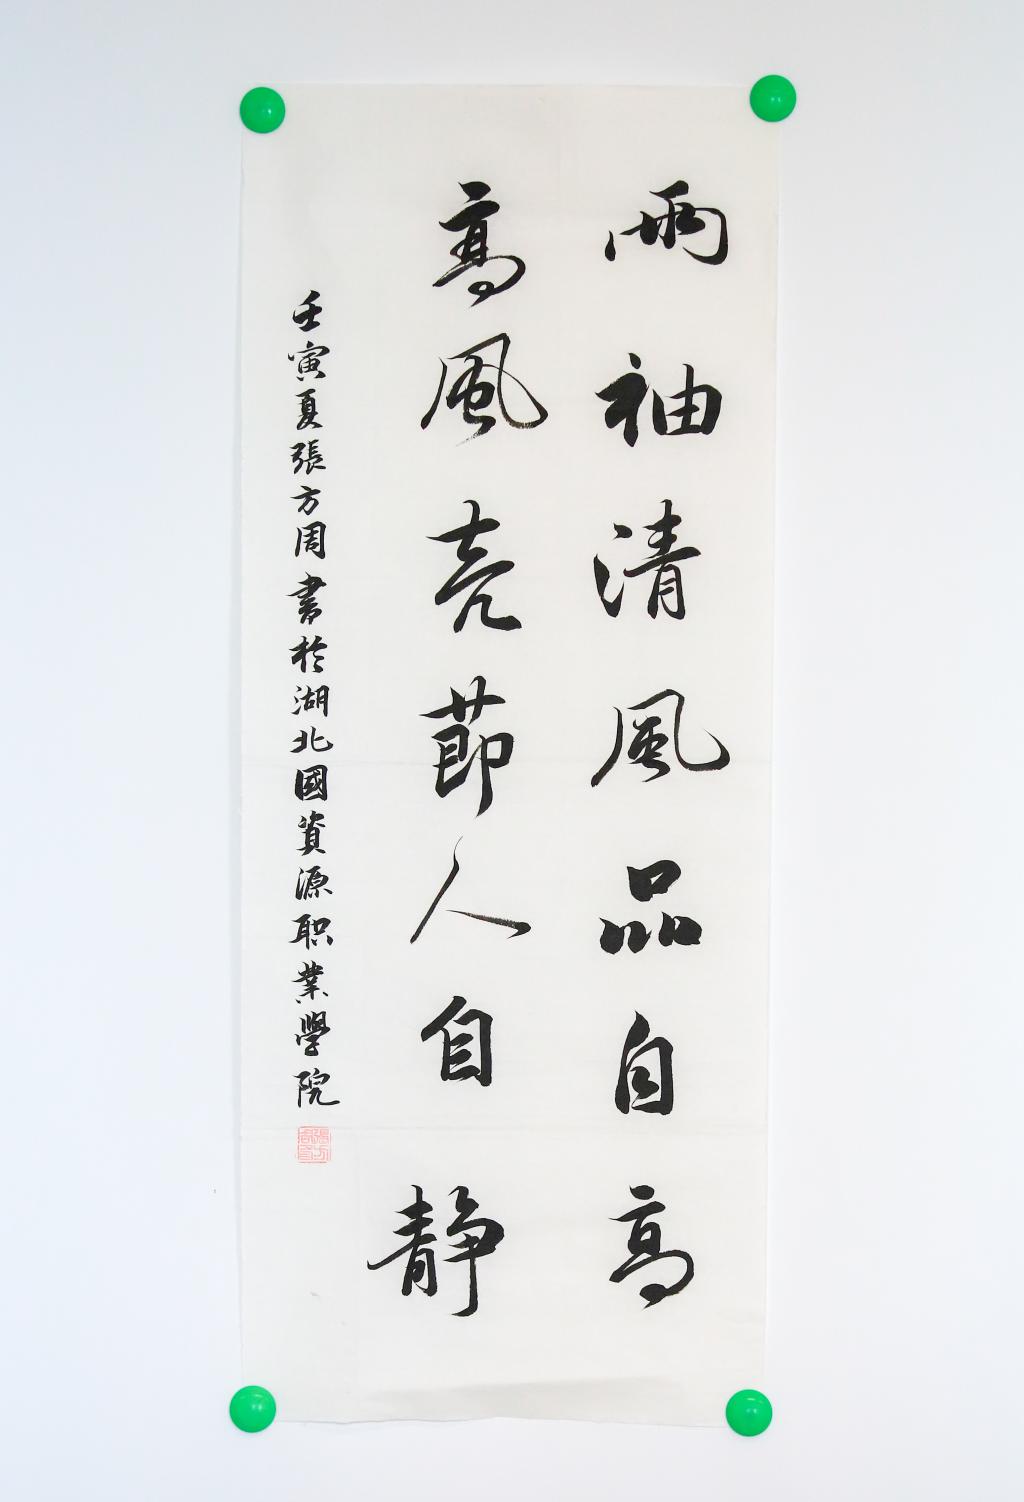 兩袖清風品自高
高風亮節人自静
壬寅夏張方周書於湖北國資源职業學院